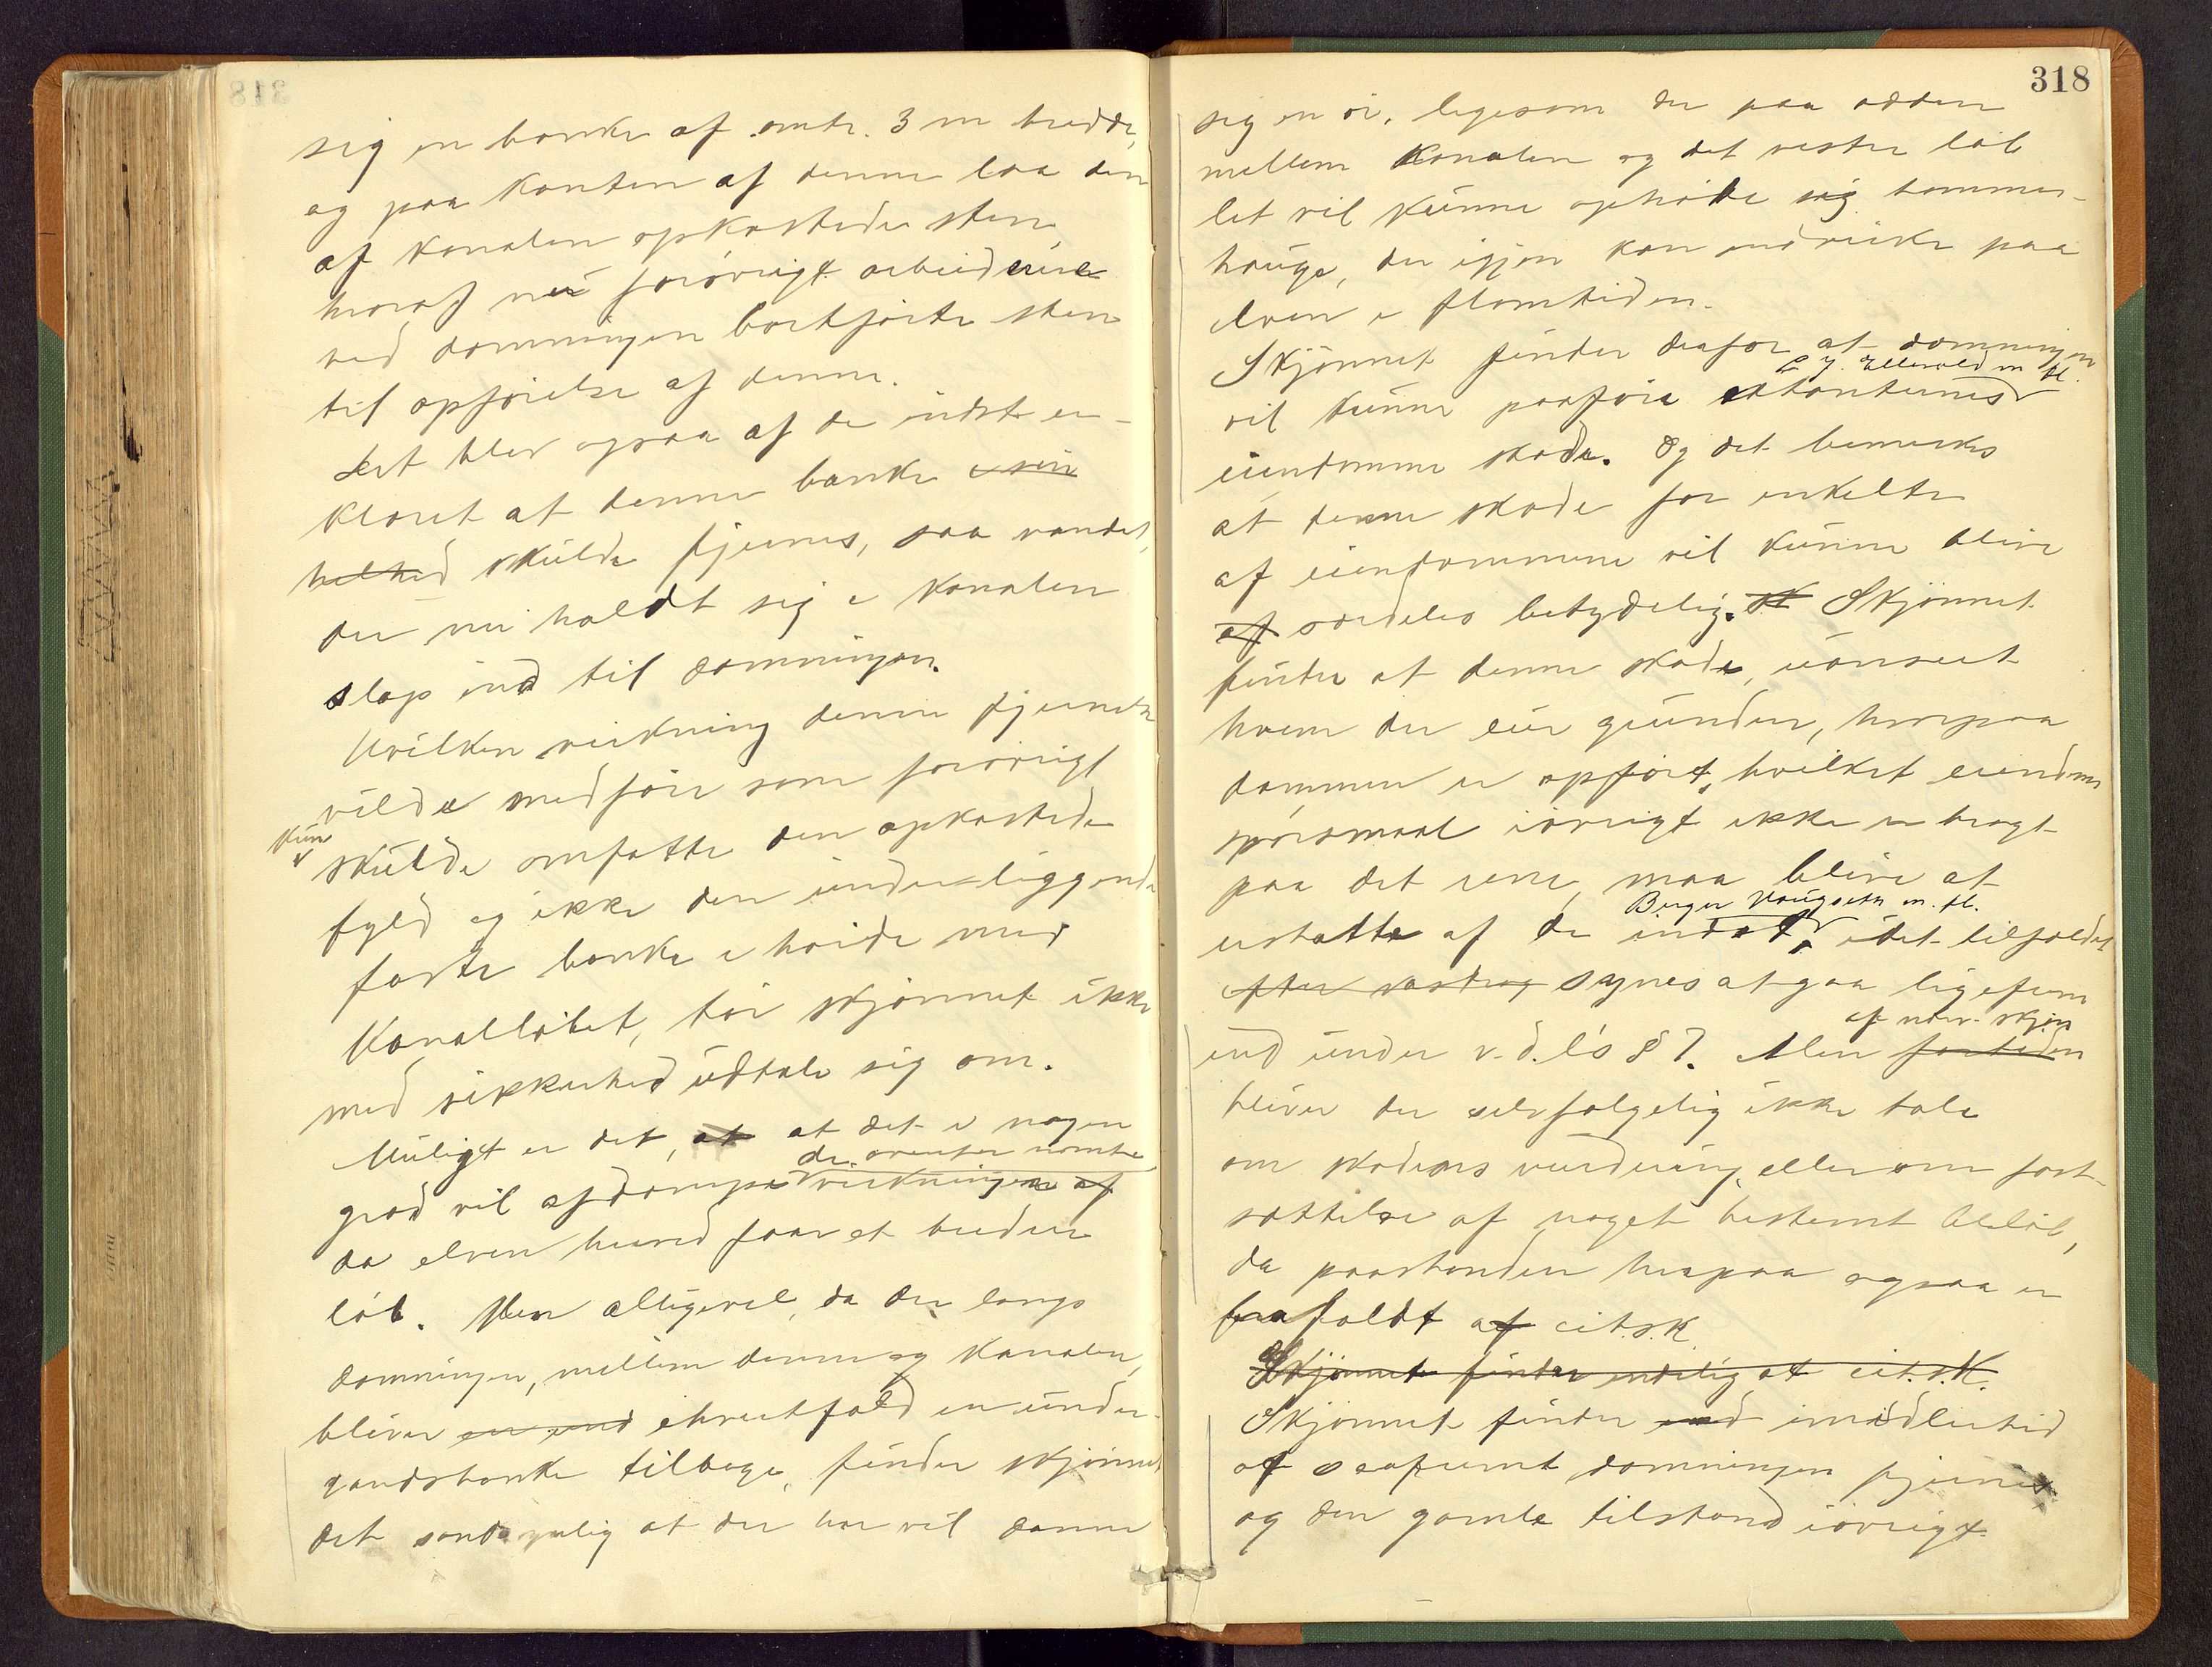 sig en banke af omtr. 3 m bredde,
og paa kanten af denne laa den
af kanalen opkastede sten
hvoraf nu forøvrigt arbeiderne
ved dæmningen bortførte sten
til opførelse af denne.
Det blev ogsaa af de indst. er-
klæret at denne banke i sin
helhed skulde fjernes, saa vandet,
der nu holdt sig i kanalen
slap ind til dæmningen.
Hvilken virkning denne fjernelse
vilde medføre som forøvrigt
kun
skulde omfatte den opkastede
fyld og ikke den underliggende
faste banke i høide med
Kanalløbet, tør skjønnet ikke
med sikkerhed udtale sig om.
Muligt er det, at at det i nogen
de ovenfor nævnte
grad vil afdæmpe virkningen af
da elven herved faar et bredere
løb. Men alligevel, da der langs
dæmningen, mellem denne og kanalen,
bliver en und ethvertfald en under-
vandsbanke tilbage, finder skjønnet
det sandsynlig at der her vil danne
318
sig en ør, ligesom der paa odden
mellem Kanalen og det vestre løb
let vil kunne ophobe sig tømmer-
hauge, der igjen kan indvirke paa
elven i flomtiden.
Skjønnet finder derfor at dæmningen
C. J. Ellevold m. fl.
vil kunne paaføre citanternes
eiendomme skade. Og det bemerkes
at denne skade for enkelte
af eiendommene vil kunne blive
af særdeles betydelig. Sk Skjønnet
finder at denne skade, uanseet
hvem der eier grunden, hvorpaa
dammen er opført, hvilket eiendoms
spørsmaal iøvrigt ikke er bragt
paa det rene, maa blive at
Birger Haugseth m. fl.
erstatte af de indst. idet tilfældet
efter vasdrag synes at gaa ligefrem
af nærv. skjøn
ind under v. d. l's § 7. Men fortiden
bliver der selvfølgelig ikke tale
om skadens vurdering, eller om fast-
sættelse af noget bestemt beløb,
da paastanden herpaa ogsaa er
frafaldt af cit.s.k.
Skjønnet finder endelig at cit.s.K.
Skjønnet finder end imidlertid
at saafremt dæmningen fjernes
og den gamle tilstand iøvrigt